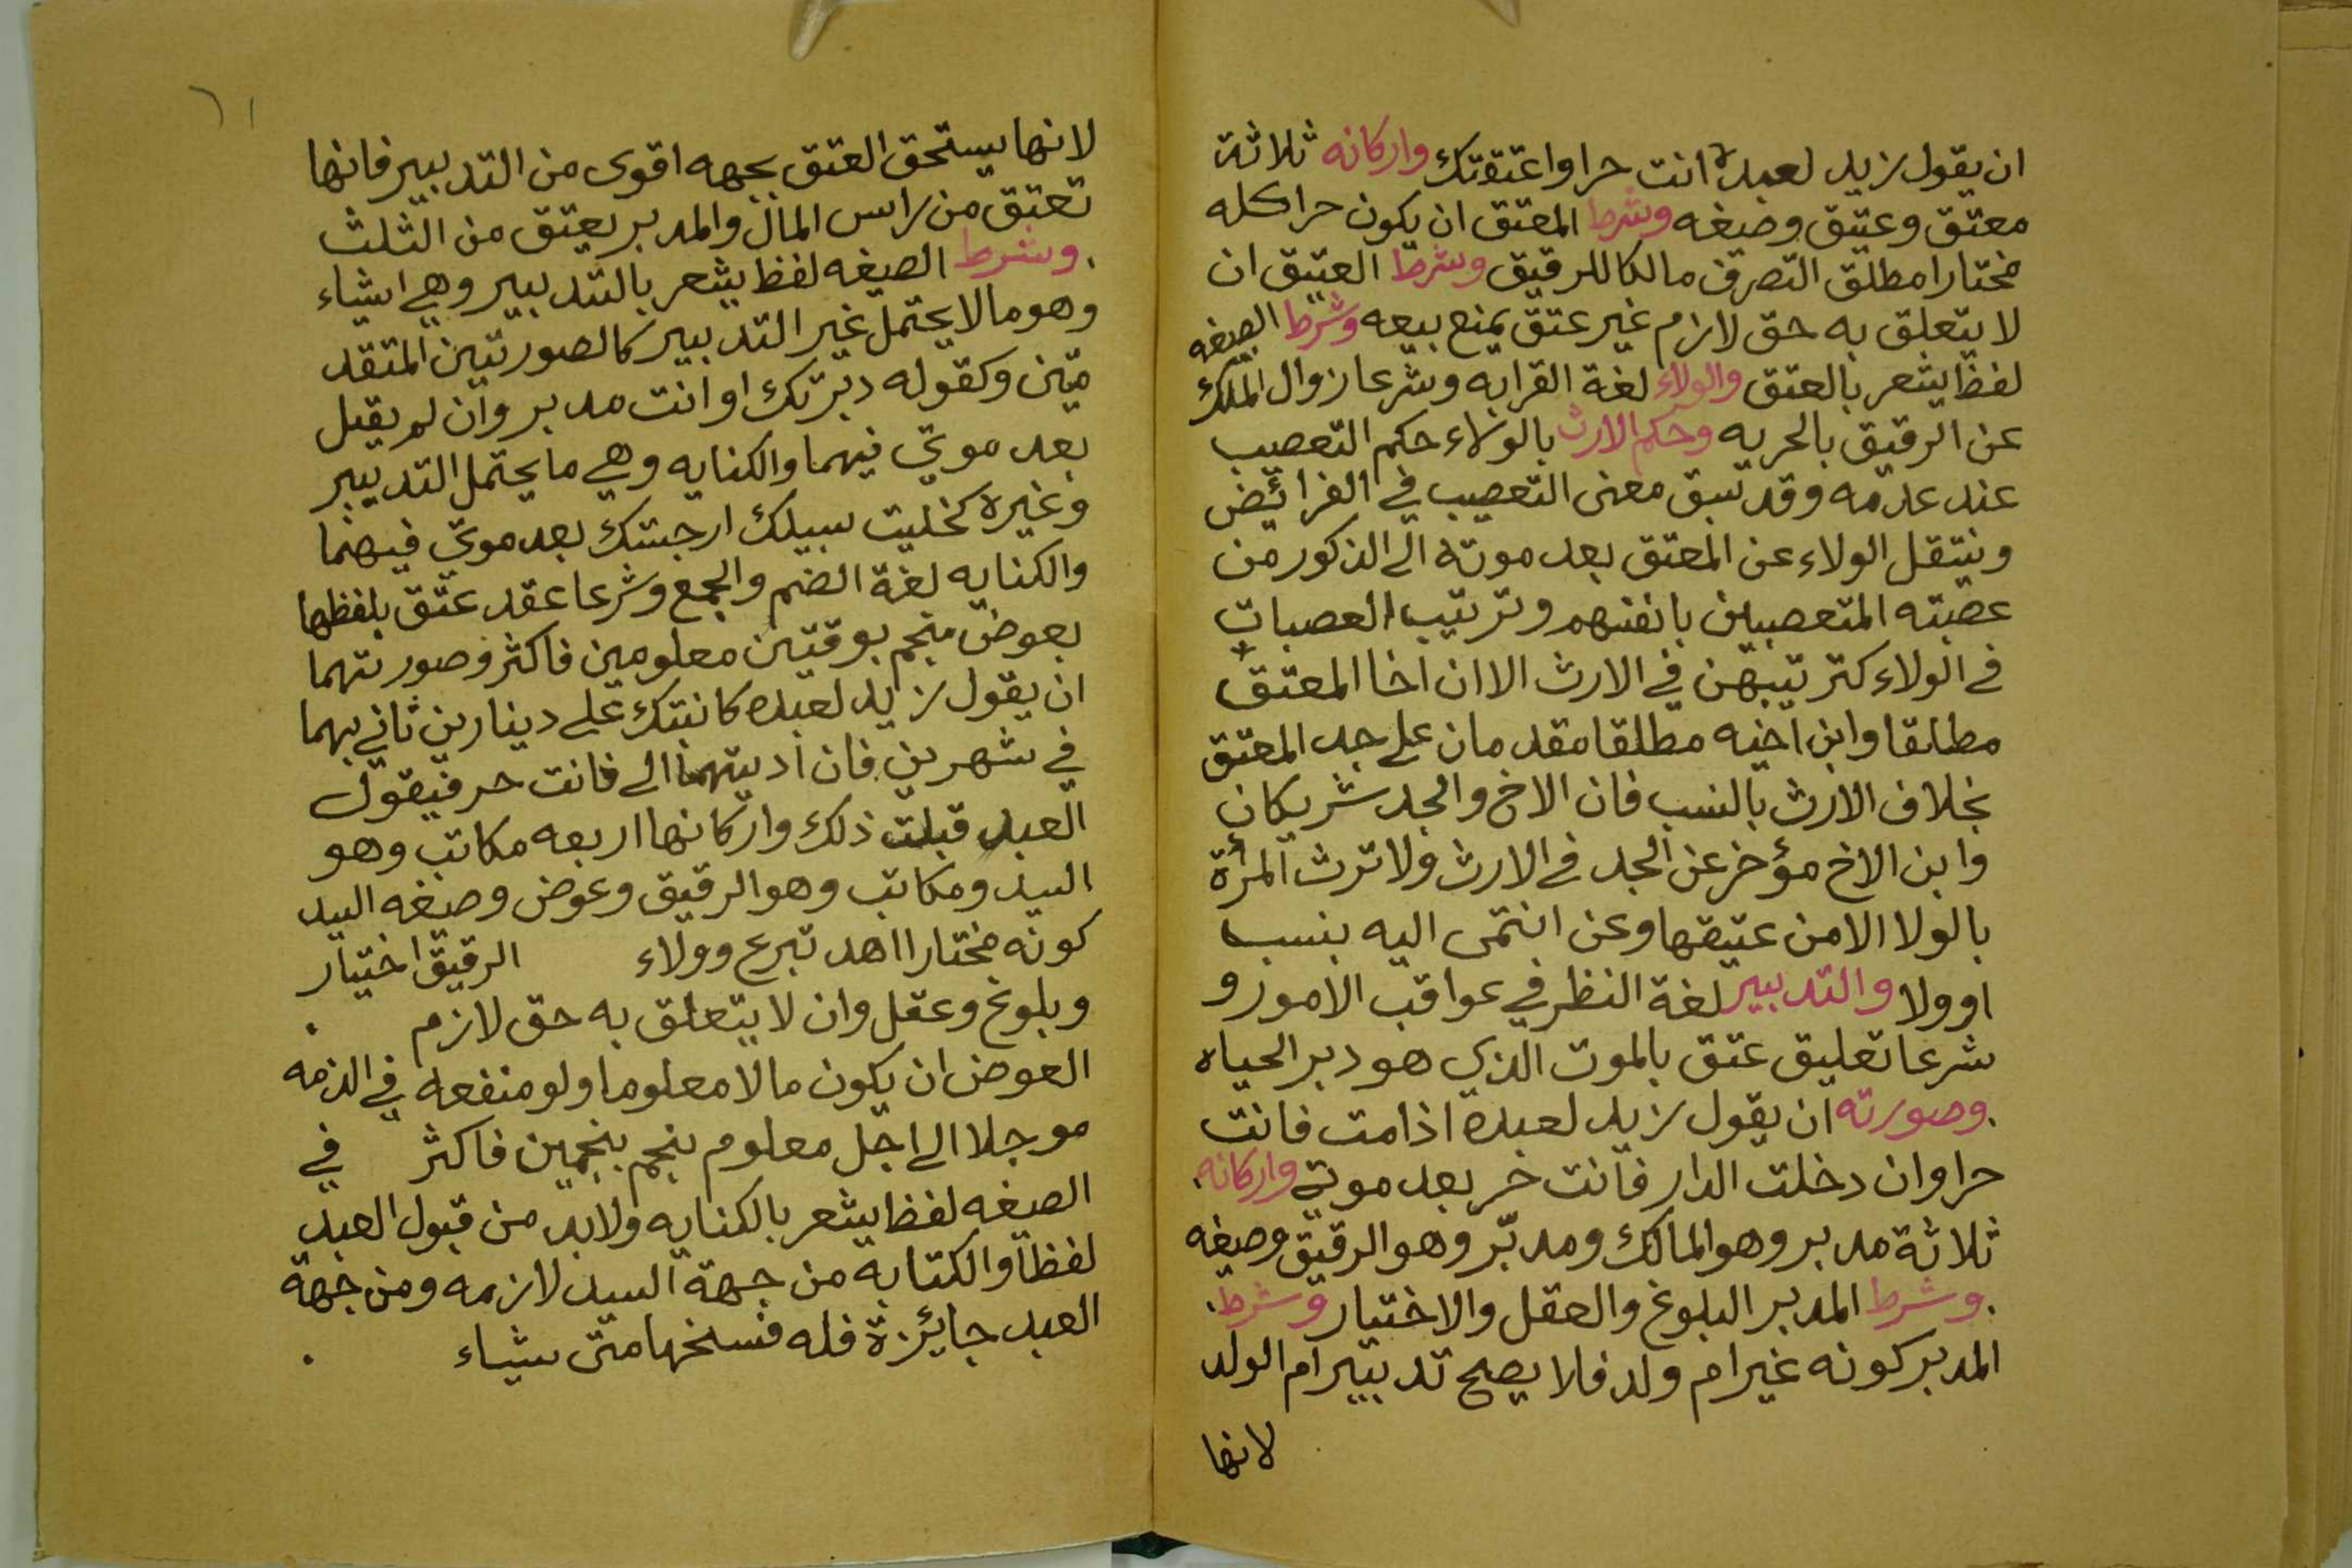 ان يقول زيد لعبده انت حر او اعتقتك واركانه ثلاثة
معتق وعتيق وصيغه وشرط المعتق ان يكون حرا كله
مختارا مطلق التصرف مالكا للرقيق وشرط العتيق ان
لا يتعلق به حق لازم غير عتق يمنع بيعه وشرط الصيغه
لفظ يشعر بالعتق والولاء لغة القرابه وشرعا زوال الملك
عن الرقيق بالحريه وحكم الارث بالولاء حكم التعصيب
عند عدمه وقد سبق معنى التعصيب في الفرائض
وينتقل الولاء عن المعتق بعد موته الى الذكور من
عصبته المتعصبين بانفسهم وترتيب العصبات
في الولاء كترتيبهن في الارث الا ان اخا المعتق
مطلقا وابن اخيه مطلقا مقدمان على جد المعتق
بخلاف الارث بالنسب فان الاخ والجد شريكان
وابن الاخ مؤخر عن الجد في الارث ولا ترث المرأة
بالولا الا من عتيقها وعن انتمى اليه بنسب
او ولا والتدبير لغة النظر في عواقب الامور و
شرعا تعليق عتق بالموت الذي هو دبر الحياه
وصورته ان يقول زيد لعبده اذا مت فانت
حر او ان دخلت الدار فانت حر بعد موتي واركانه
ثلاثة مدبر وهو المالك ومدبّر وهو الرقيق وصيغه
وشرط المدبر البلوغ والعقل والاختيار وشرط
المدبر كونه غير ام ولد فلا يصح تدبير ام الولد
لانها
٦١
لانها يستحق العتق بجهه اقوى من التدبير فانها
تعتق من راس المال والمدبر يعتق من الثلث
وشرط الصيغه لفظ يشعر بالتدبير وهي انشاء
وهو مالا يحتمل غير التدبير كالصورتين المتقد
متين وكقوله دبرتك او انت مدبر وان لم يقل
بعد موتي فيهما والكنايه وهي ما يحتمل التدبير
وغيره كخليت سبيلك ار حبستك بعد موتي فيهما
والكنايه لغة الضم والجمع وشرعا عقد عتق بلفظها
بعوض منجم بوقتين معلومين فاكثر وصورتهما
ان يقول زيد لعبده كاتبتك على دينارين تاتي بهما
في شهرين فان اديتهما الي فانت حر فيقول
العبد قبلت ذلك واركانها اربعه مكاتب وهو
السيد ومكاتب وهو الرقيق وعوض وصيغه السيد
كونه مختارا اهد تبرع وولاء الرقيق اختيار
وبلوغ وعقل وان لا يتعلق به حق لازم
العوض ان يكون مالا معلوما ولو منفعه في الذمه
موجلا الى اجل معلوم ينجم بنجمين فاكثر في
الصيغه لفظ يشعر بالكنايه ولابد من قبول العبد
لفظا والكتابه من جهة السيد لازمه ومن جهة
العبد جايزة فله فسخها متى شاء